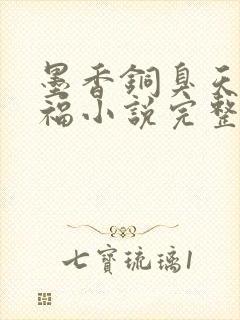 墨香銅臭天
福小說完整
七寶琉璃1